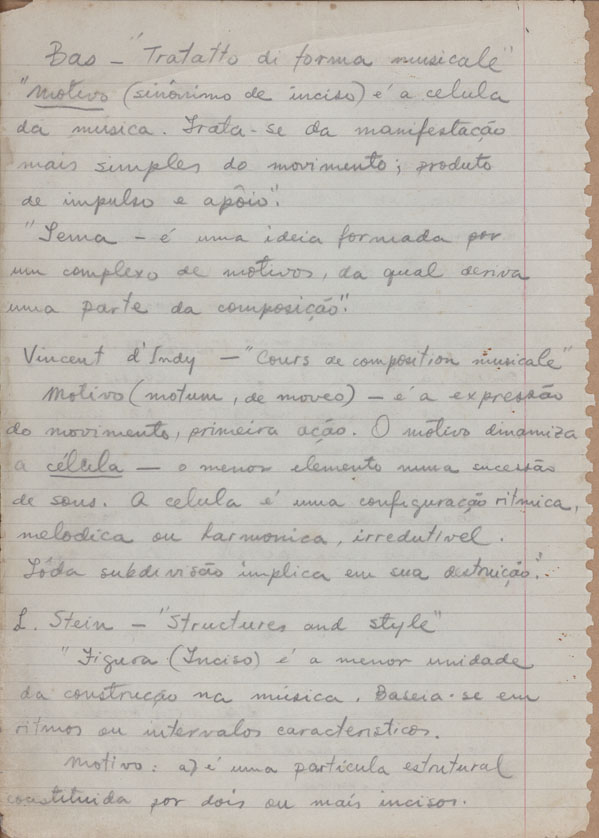 Bas - "Tratatto di forma musicale"
"Motivo (sinônimo de inciso) é a celula
da música. Trata-se da manifestação
mais simples do movimento; produto
de impulso e apôio".
"Tema - é uma ideia formada por
um complexo de motivos, da qual deriva
uma parte da composição".
Vincent d'Indy - "Cours de composition musicale"
Motivo (motum, de moveo) - é a expressão
do movimento, primeira ação. O motivo dinamiza
a célula - o menor elemento numa sucessão
de sons. A celula é uma configuração ritmica,
melodica ou harmonica, irredutivel.
Tôda subdivisão implica em sua destruição".
L. Stein - "Structures and style"
"Figura (Inciso) é a menor unidade
da construcção na música. Baseia-se em
ritmos ou intervalos caracteristicos.
Motivo: a) é uma particula estrutural
constituida por dois ou mais incisos.